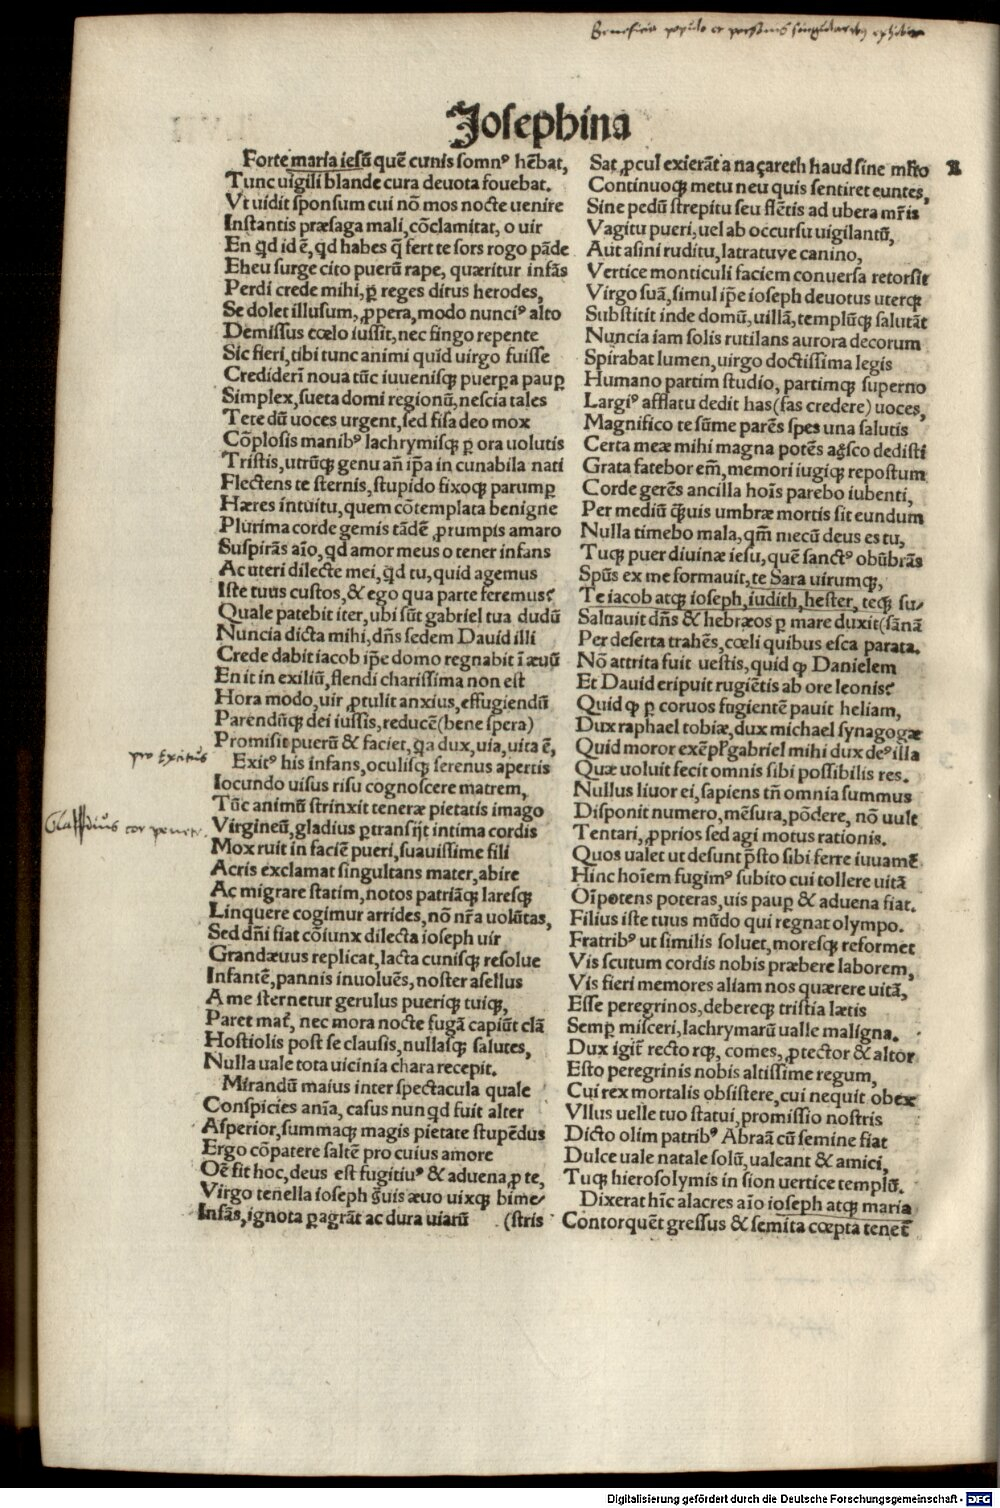 Josephina
Forte maria iesū quē cunis somnꝰ hēbat,
Tunc uigili blande cura deuota fouebat.
Vt uidit sponsum cui nō mos nocte uenire
Instantis præsaga mali, cōclamitat, o uir
En qd id ē, qd habes q̄ fert te sors rogo pāde
Eheu surge cito puerū rape, quæritur infās
Perdi crede mihi, ꝑ reges dirus herodes,
Se dolet illusum, ꝓpera, modo nunciꝰ alto
Demissus cœlo iussit, nec fingo repente
Sic fieri, tibi tunc animi quid uirgo fuisse
Crediderī noua tūc iuuenisqꝫ puerꝑa pauꝑ
Simplex, sueta domi regionū, nescia tales
Te te dū uoces urgent, sed fisa deo mox
Cōplosis manibꝰ lachrymisqꝫ ꝑ ora uolutis
Tristis, utrūqꝫ genu añ ip̄a in cunabila nati
Flectens te sternis, stupido fixoqꝫ parumꝑ
Hæres intuitu, quem cōtemplata benigne
Plurima corde gemis tādē ꝓrumpis amaro
Suspirās aīo, qd amor meus o tener infans
Ac uteri dilecte mei, qd tu, quid agemus
Iste tuus custos, & ego qua parte feremus?
Quale patebit iter, ubi sūt gabriel tua dudū
Nuncia dicta mihi, dn̄s sedem Dauid illi
Crede dabit iacob ip̄e domo regnabit ī æuū
En it in exiliū, flendi charissima non est
Hora modo, uir ꝓtulit anxius, effugiendū
Parendūqꝫ dei iussis, reducē (bene spera)
Promisit puerū & faciet, qa dux, uia, uita ē,
pro Exitus
Exitꝰ his infans, oculisqꝫ serenus apertis
Iocundo uisus risu cognoscere matrem,
Tūc animū strinxit teneræ pietatis imago
Gladius cor penetr.
Virgineū, gladius ꝑtransijt intima cordis
Mox ruit in faciē pueri, suauissime fili
Acris exclamat singultans mater, abire
Ac migrare statim, notos patriāqꝫ laresqꝫ
Linquere cogimur arrides, nō nr̄a uolūtas,
Sed dn̄i fiat cōiunx dilecta ioseph uir
Grandæuus replicat, lacta cunisqꝫ resolue
Infantē, pannis inuoluēs, noster asellus
A me sternetur gerulus pueriqꝫ tuiqꝫ,
Paret mat̄, nec mora nocte fugā capiūt clā
Hostiolis post se clausis, nullasqꝫ salutes,
Nulla uale tota uicinia chara recepit.
Mirandū maius inter spectacula quale
Conspicies anīa, casus nunqd fuit alter
Asperior, summaqꝫ magis pietate stupēdus
Ergo cōpatere saltē pro cuius amore
Oē fit hoc, deus est fugitiuꝰ & aduena ꝓ te,
Virgo tenella ioseph g̃uis æuo uixqꝫ bime-
Infās, ignota ꝑagrāt ac dura uiarū (stris
Sat ꝓcul exierāt a naçareth haud sine mr̄to
Continuoqꝫ metu neu quis sentiret euntes,
Sine pedū strepitu seu flētis ad ubera mr̄is
Vagitu pueri, uel ab occursu uigilantū,
Aut asini ruditu, latratuve canino,
Vertice monticuli faciem conuersa retorsit
Virgo suā, simul ip̄e ioseph deuotus uterqꝫ
Substitit inde domū, uillā, templūqꝫ salutāt
Nuncia iam solis rutilans aurora decorum
Spirabat lumen, uirgo doctissima legis
Humano partim studio, partimqꝫ superno
Largiꝰ afflatu dedit has (fas credere) uoces,
Magnifico te sūme parēs spes una salutis
Certa meæ mihi magna potēs ag̃sco dedisti
Grata fatebor em̄, memori iugiqꝫ repostum
Corde gerēs ancilla hoīs parebo iubenti,
Per mediū q̃uis umbræ mortis sit eundum
Nulla timebo mala, qm̄ mecū deus es tu,
Tuqꝫ puer diuinæ iesu, quē sanctꝰ obūbrās
Spūs ex me formauit, te Sara uirumqꝫ,
Te iacob atqꝫ ioseph, iudith, hester, teqꝫ su-
Saluauit dn̄s & hebræos ꝑ mare duxit (sānā
Per deserta trahēs, cœli quibus esca parata.
Nō attrita fuit uestis, quid ꝙ Danielem
Et Dauid eripuit rugiētis ab ore leonis?
Quid ꝙ ꝑ coruos fugientē pauit heliam,
Dux raphael tobiæ, dux michael synagogæ
Quid moror exēpl̄ gabriel mihi dux deꝰ illa
Quæ uoluit fecit omnis sibi possibilis res.
Nullus liuor ei, sapiens tn̄ omnia summus
Disponit numero, mēsura, pōdere, nō uult
Tentari, ꝓprios sed agi motus rationis.
Quos ualet ut desunt p̄sto sibi ferre iuuamē
Hinc hoīem fugimꝰ subito cui tollere uitā
Oīpotens poteras, uis pauꝑ & aduena fiat.
Filius iste tuus mūdo qui regnat olympo.
Fratribꝰ ut similis soluet, moresqꝫ reformet
Vis scutum cordis nobis præbere laborem,
Vis fieri memores aliam nos quærere uitā,
Esse peregrinos, debereqꝫ tristia lætis
Semꝑ misceri, lachrymarū ualle maligna.
Dux igit̄ rectorqꝫ, comes, ꝓtector & altor
Esto peregrinis nobis altissime regum,
Cui rex mortalis obsistere, cui nequit obex
Vllus uelle tuo statui, promissio nostris
Dicto olim patribꝰ Abraā cū semine fiat
Dulce uale natale solū, ualeant & amici,
Tuqꝫ hierosolymis in sion uertice templū.
Dixerat hīc alacres aīo ioseph atqꝫ maria
Contorquēt gressus & semita cœpta tenet̄
Digitalisierung gefördert durch die Deutsche Forschungsgemeinschaft - DFG